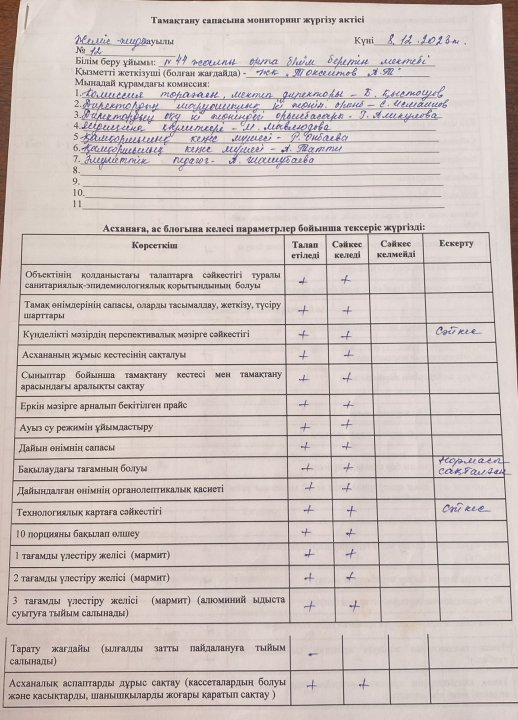 Тамақтану сапасына мониторинг жүргізу актісі
Жеміс-жидек ауылы Күні 8.12.2023ж.
№ 12
Білім беру ұйымы: №44 жалпы орта білім беретін мектебі
Қызметті жеткізуші (болған жағдайда) - жк
Мынадай құрамдағы комиссия:
1. Комиссия төрағасы, мектеп директоры – Б.
2. Директордың шаруашылық іс жөнін. орынб – С. Исмаилов
3. Директордың оқу ісі жөніндегі орынбасары-
4.
5. Қамқоршылық кеңес мүшесі -
6. Қамқоршылық кеңес мүшесі - А.
7. Әлеуметтік педагог- А.
8.
9.
10.
11
Асханаға, ас блогына келесі параметрлер бойынша тексеріс жүргізді:
Көрсеткіш Талап етіледі Сәйкес келеді Сәйкес келмейді Ескерту
Объектінің қолданыстағы талаптарға сәйкестігі туралы
санитариялық-эпидемиологиялық қорытындының болуы + +
Тамақ өнімдерінің сапасы, оларды тасымалдау, жеткізу, түсіру
шарттары + +
Күнделікті мәзірдің перспективалық мәзірге сәйкестігі + + сәйкес
Асхананың жұмыс кестесінің сақталуы + +
Сыныптар бойынша тамақтану кестесі мен тамақтану
арасындағы аралықты сақтау + +
Еркін мәзірге арналып бекітілген прайс + +
Ауыз су режимін ұйымдастыру + +
Дайын өнімнің сапасы + +
Бақылаудағы тағамның болуы + + нормасы сақталған
Дайындалған өнімнің органолептикалық қасиеті + +
Технологиялық картаға сәйкестігі + + сәйкес
10 порцияны бақылап өлшеу + +
1 тағамды үлестіру желісі (мармит) + +
2 тағамды үлестіру желісі (мармит) + +
3 тағамды үлестіру желісі (мармит) (алюминий ыдыста
суытуға тыйым салынады) + +
Тарату жағдайы (ылғалды затты пайдалануға тыйым
салынады) -
Асханалық аспаптарды дұрыс сақтау (кассеталардың болуы
және қасықтарды, шанышқыларды жоғары қаратып сақтау ) + +